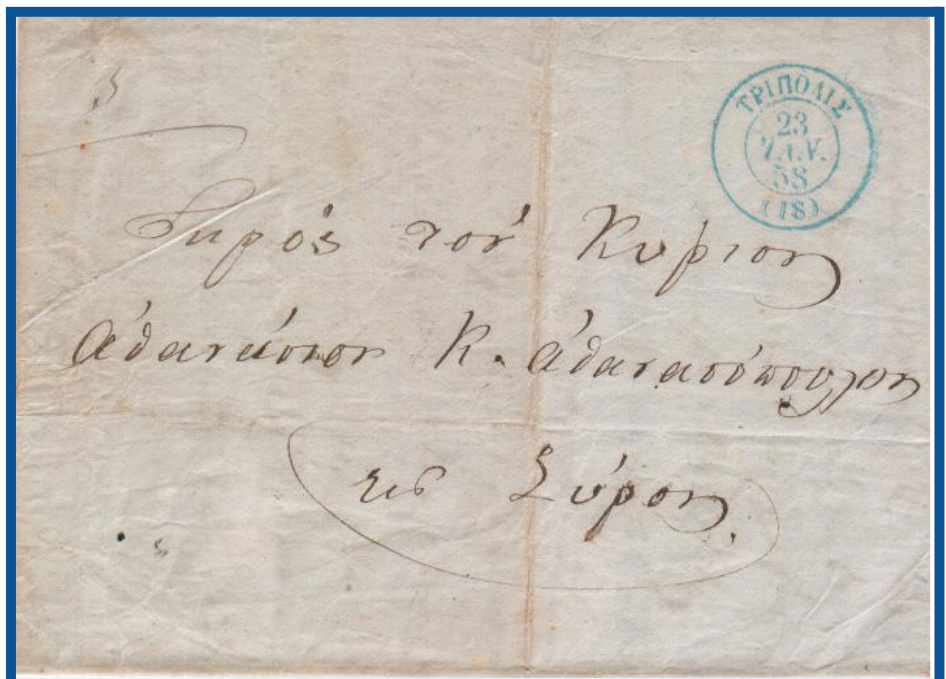 ΤΡΙΠΟΛΙΣ
23
ΙΑΝ.
58
(18)
Πρός τόν Κύριον
Αθανάσιον Κ. Αθανασόπουλον
εις Σύρον.